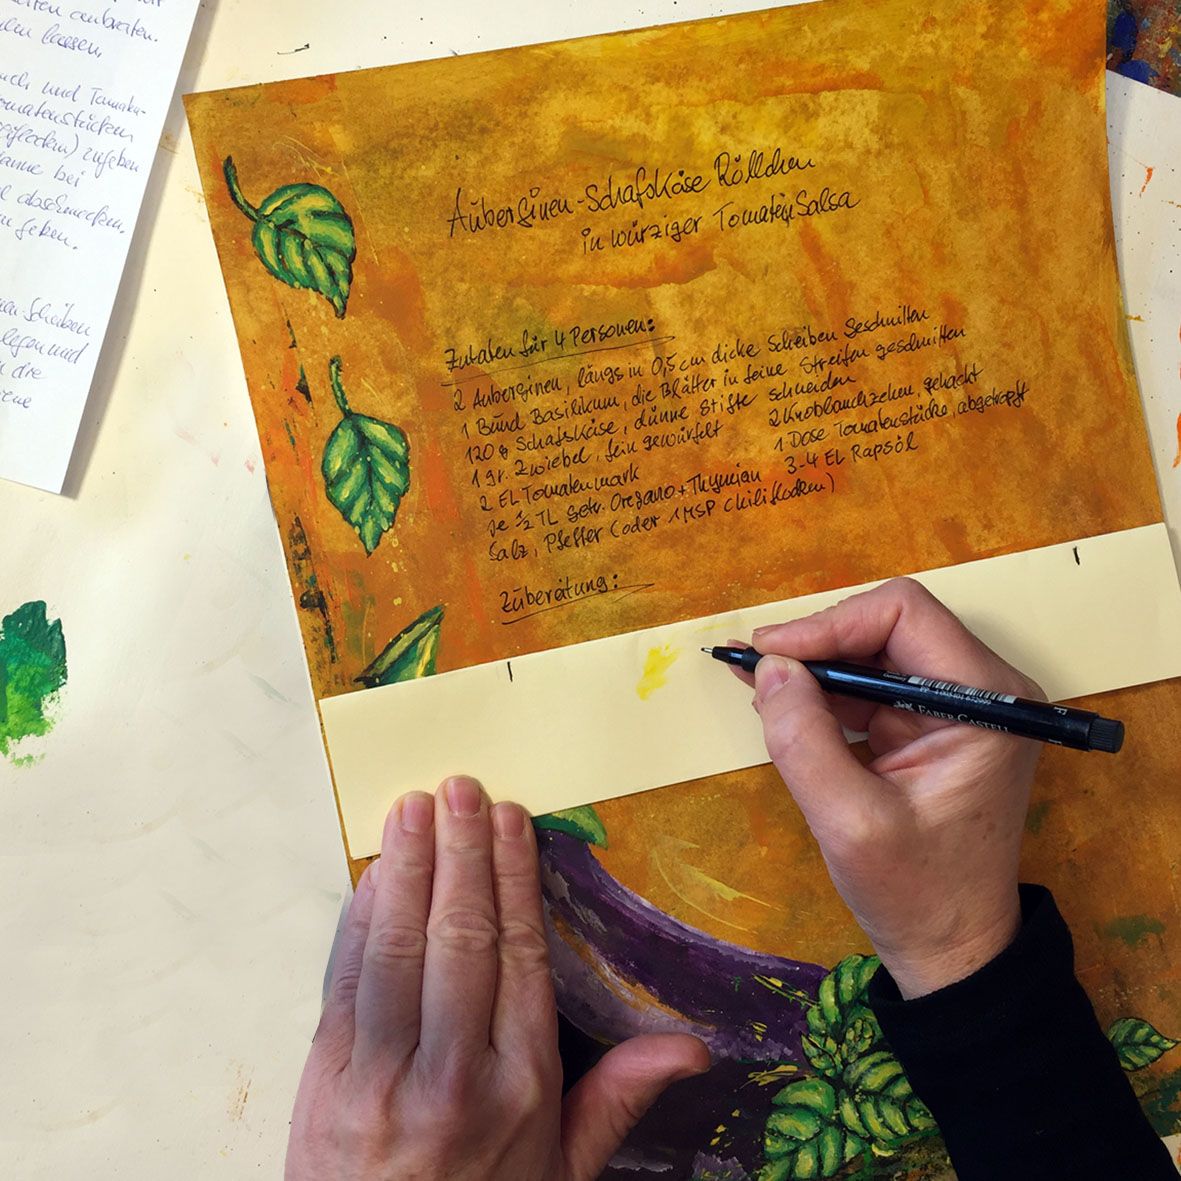 eiten anbraten.
lassen.
und Tomaten-
omatenstücken
zugeben
bei
abschmecken.
geben.
Scheiben
legen und
die
Auberginen-Schafskäse Röllchen
in würziger Tomaten Salsa
Zutaten für 4 Personen:
2 Auberginen, längs in 0,5 cm dicke Scheiben geschnitten
1 Bund Basilikum, die Blätter in feine Streifen geschnitten
120 g Schafskäse, dünne Stifte schneiden
1 gr. Zwiebel, fein gewürfelt 2 Knoblauchzehen, gehackt
2 EL Tomatenmark 1 Dose Tomatenstücke, abgetropft
Je ½ TL getr. Oregano + Thymian 3-4 EL Rapsöl
Salz, Pfeffer (oder 1 MSP Chiliflocken)
Zubereitung:
FABER-CASTELL
F